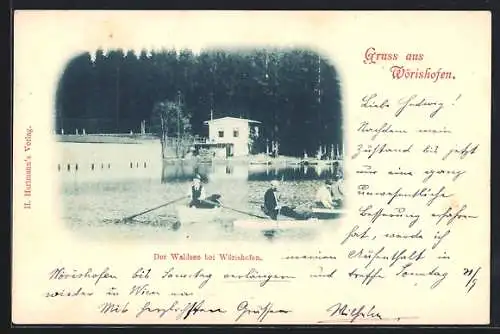 Gruss aus
Wörishofen.
Liebe Hedwig!
Nachdem mein
Zustand bis jetzt
nur eine ganz
unwesentliche
Besserung erfahren
hat, werde ich
meinen Aufenthalt in
Wörishofen bis Samstag verlängern und treffe Samstag 21/9
wieder in Wien ein
Mit herzlichsten Grüssen Wilhelm
Der Waldsee bei Wörishofen.
H. Hartmann's Verlag.